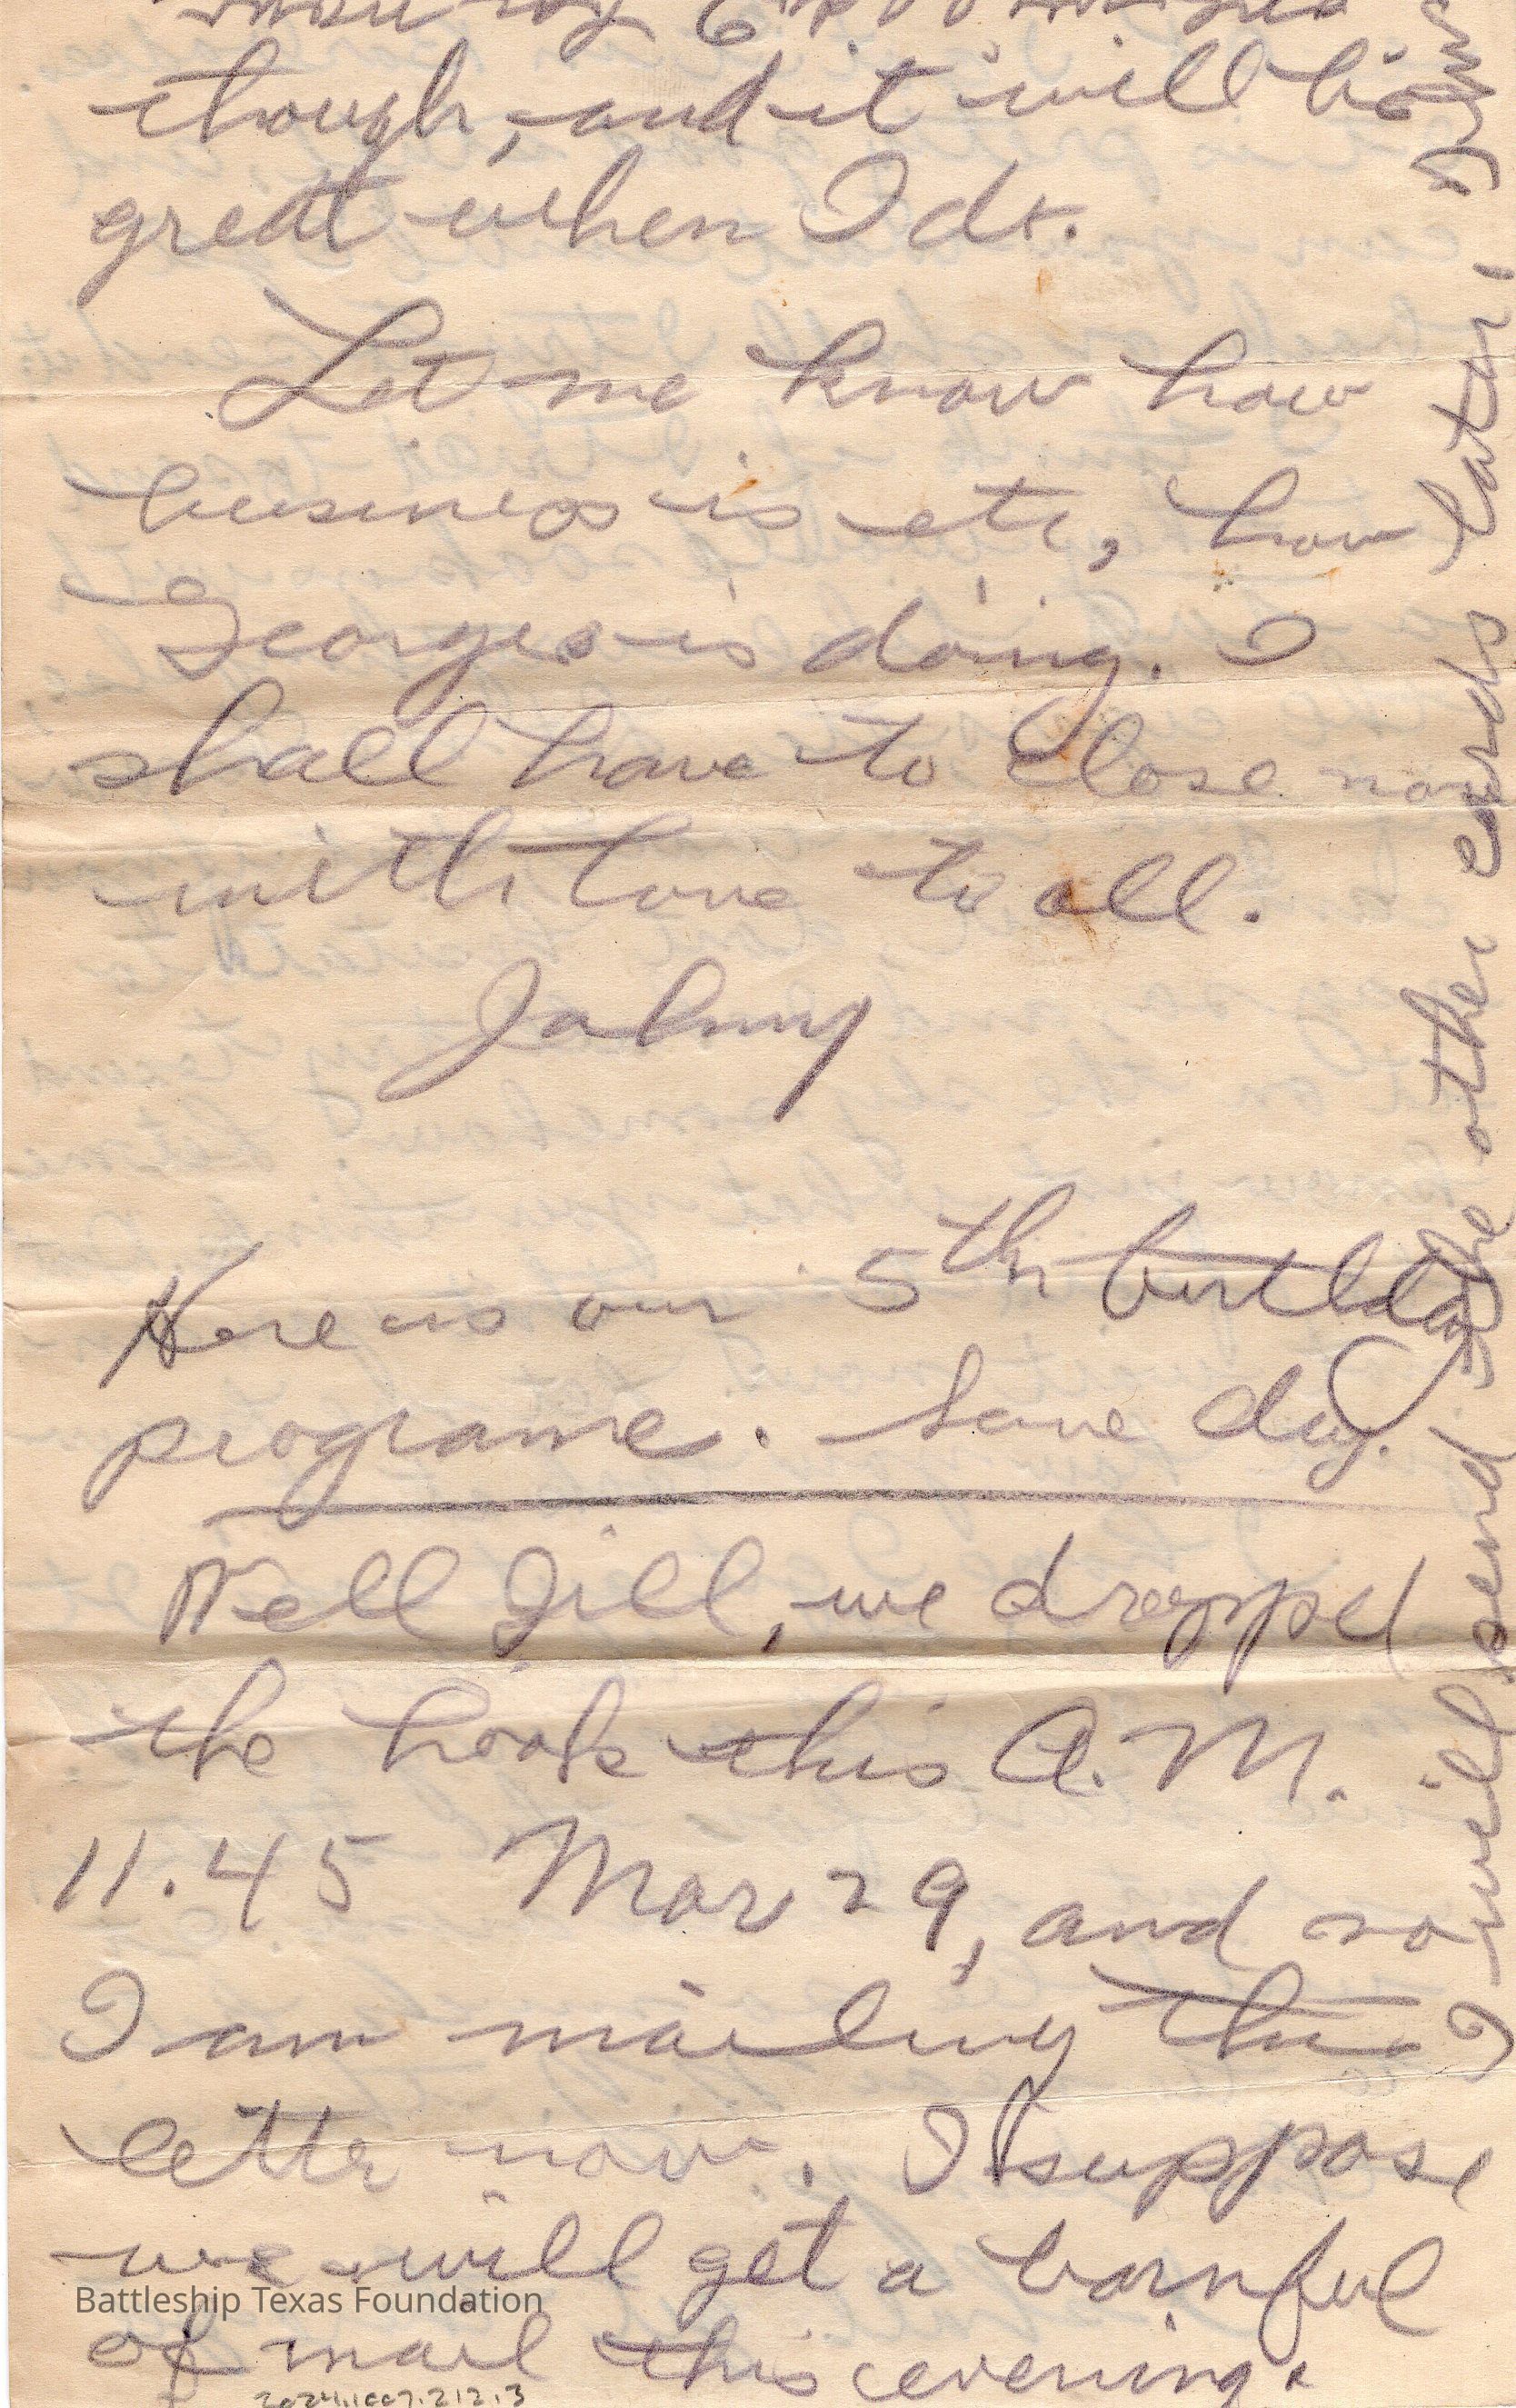 though, and it will be
great when I do.
Let me know how
business is etc, how
Georges is doing. I
shall have to close now
with love to all.
Johnny
Here is our 5th birthday
programe. Same day.
Well Jill, we dropped
the hook this A.M.
11.45 Mar 29, and so
I am mailing this
letter now. I suppose
we will get a barnful
of mail this evening.
I will send the other cards later,
Battleship Texas Foundation
2024.1007.212.3